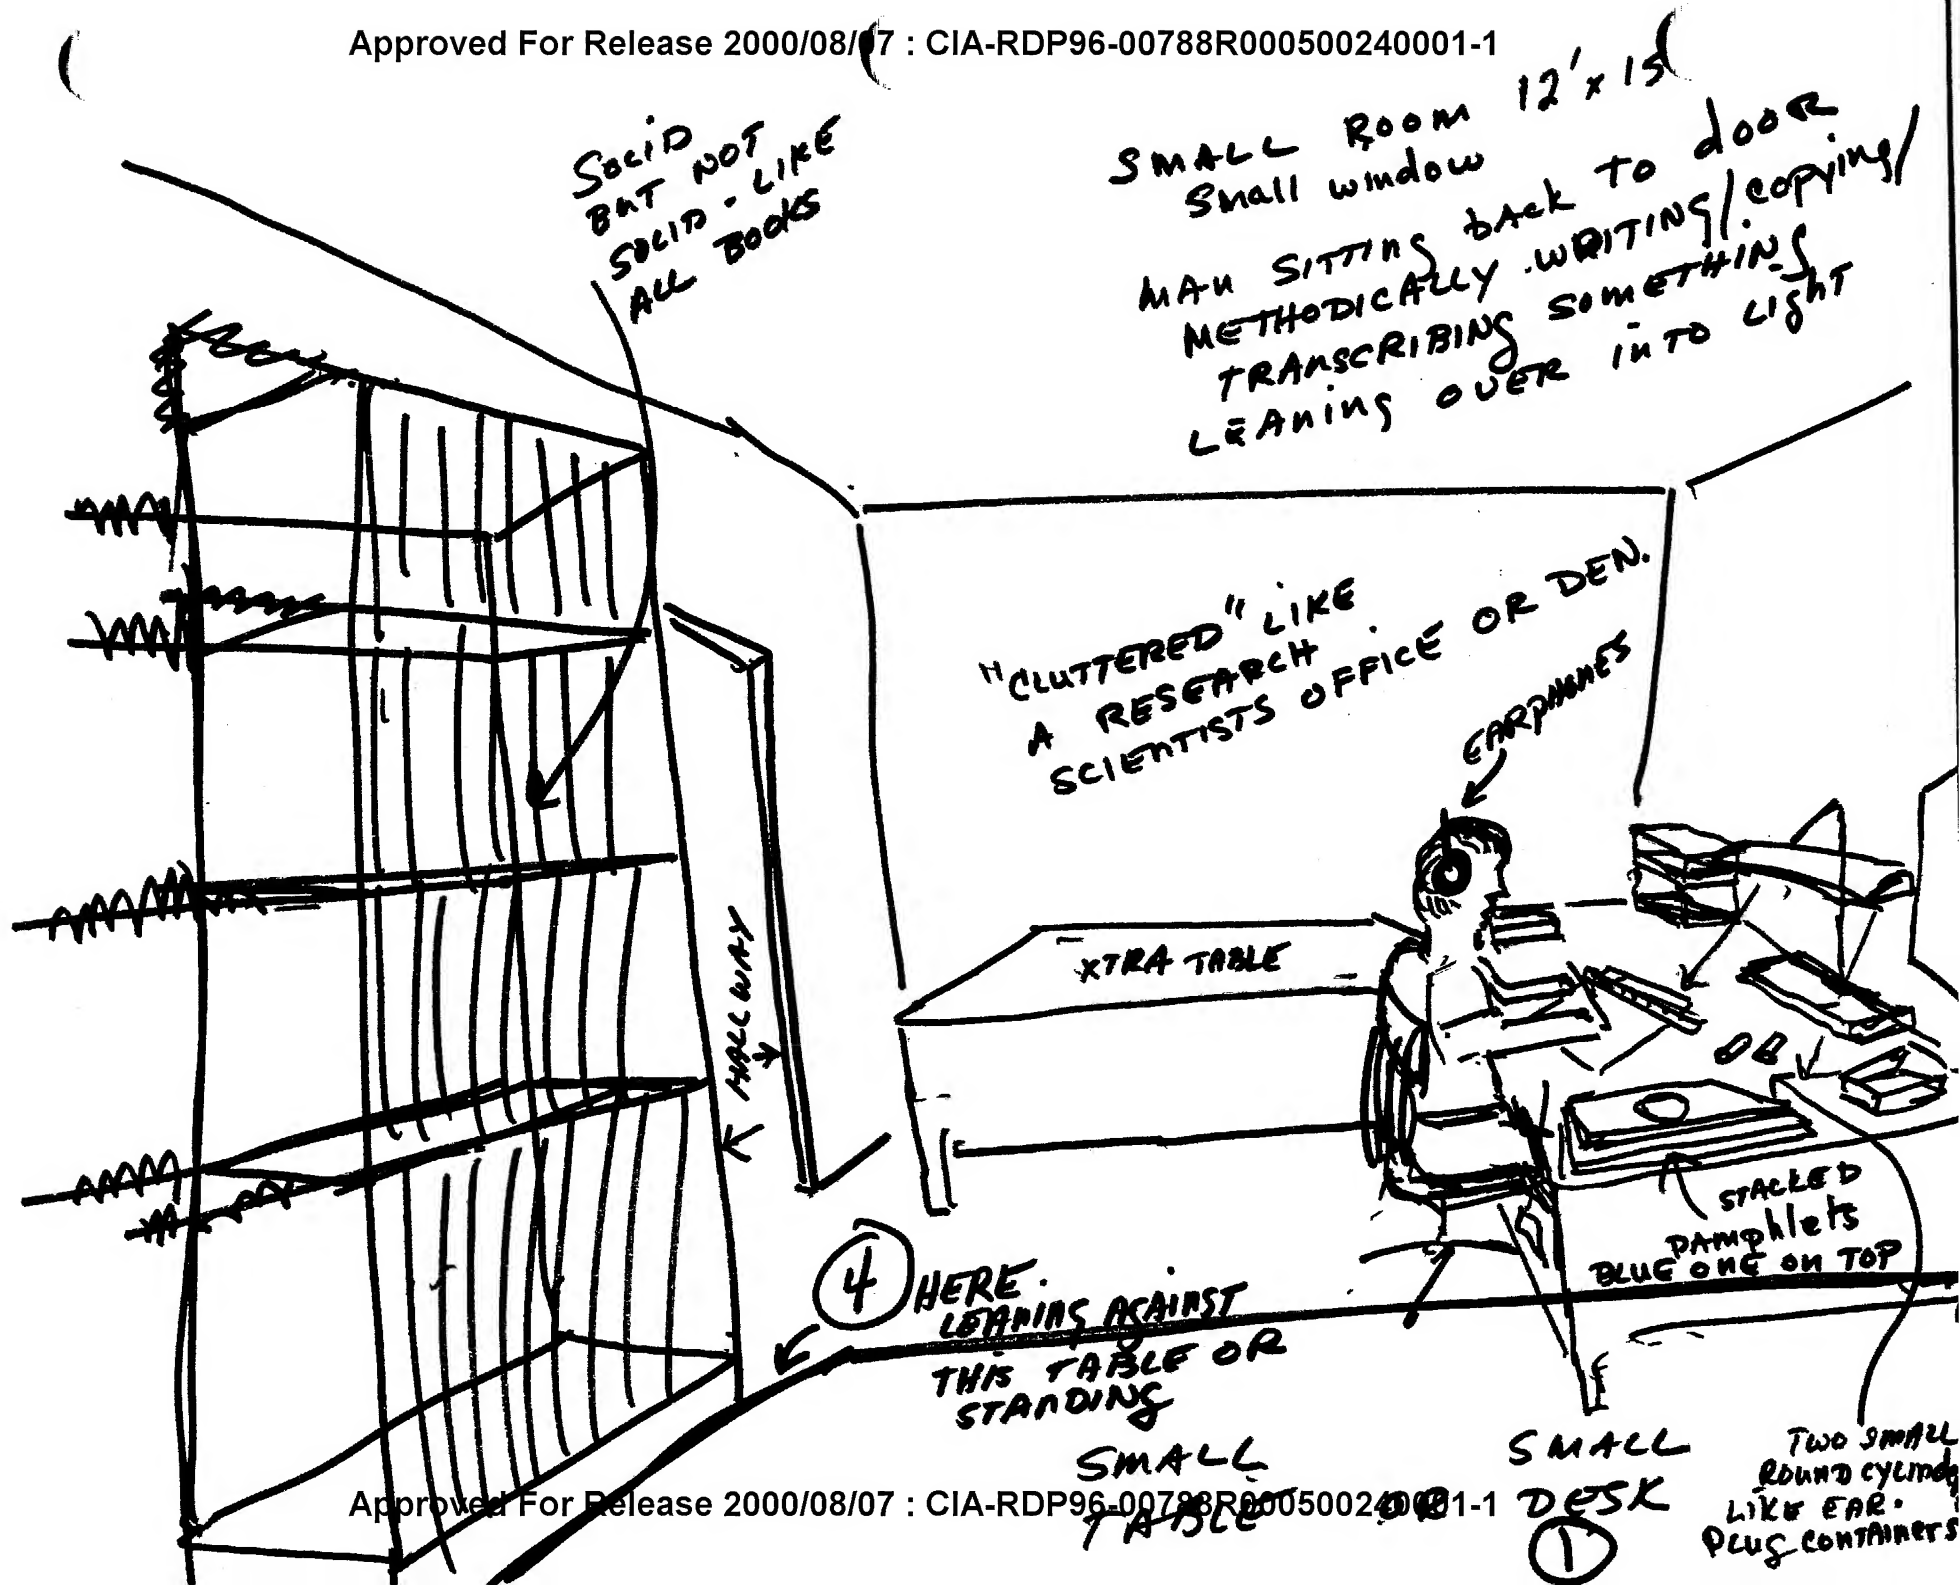 Approved For Release 2000/08/07 : CIA-RDP96-00788R000500240001-1
SOLID
BUT NOT
SOLID - LIKE
ALL BOOKS
SMALL ROOM 12' x 15
Small window
MAN SITTING back TO dooR
METHODICALLY WRITING/copying/
TRANSCRIBING SOMETHING
LEANING OVER INTO LIGHT
"CLUTTERED" LIKE
A RESEARCH
SCIENTISTS OFFICE OR DEN.
EARPHONES
XTRA TABLE
HALLWAY
STACKED
PAMphlets
BLUE ONE ON TOP
4 HERE.
LEANING AGAINST
THIS TABLE OR
STANDING
SMALL
TABLE OR
SMALL
DESK
1
TWO SMALL
ROUND CYLINDE
LIKE EAR.
PLUG CONTAINERS
Approved For Release 2000/08/07 : CIA-RDP96-00788R000500240001-1